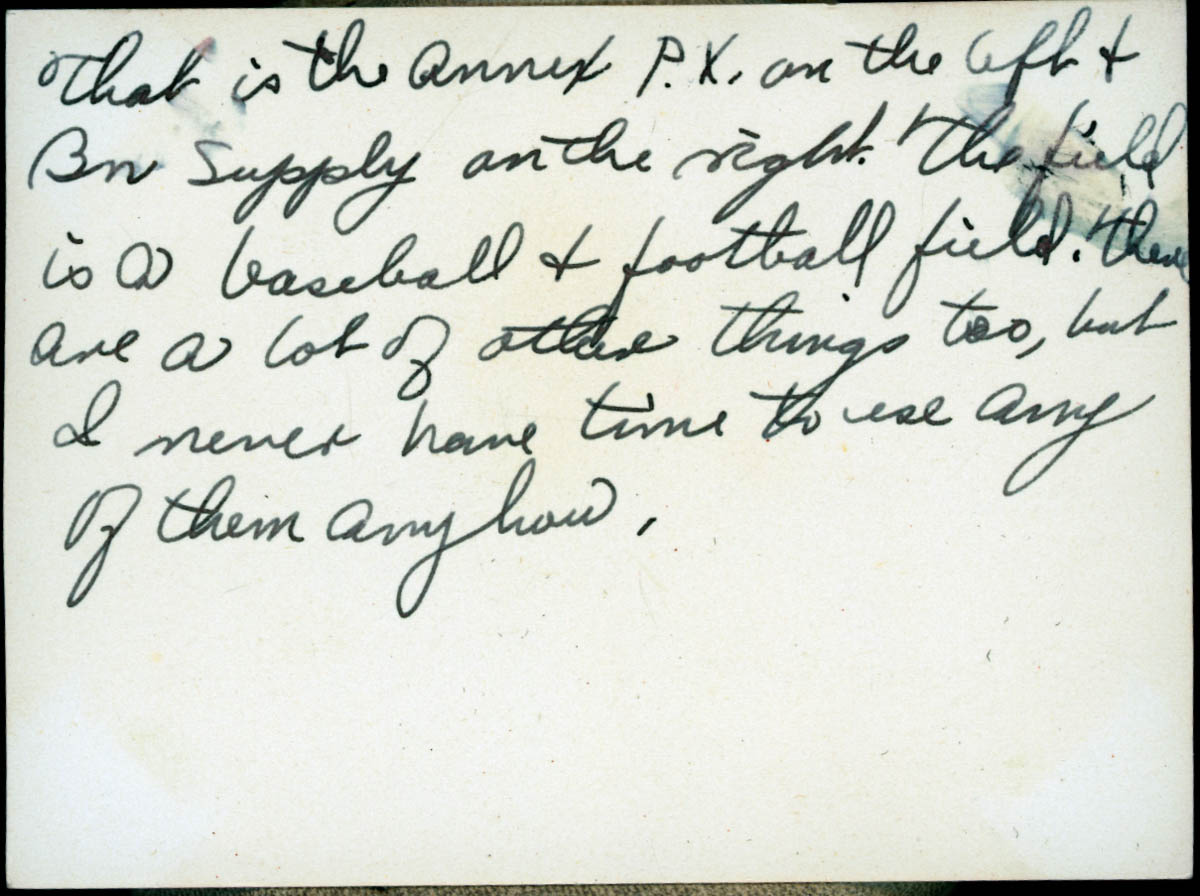 That is the Annex P.X. on the left +
Bn Supply on the right. The field
is a baseball + football field. There
are a lot of other things too, but
I never have time to use any
of them anyhow.